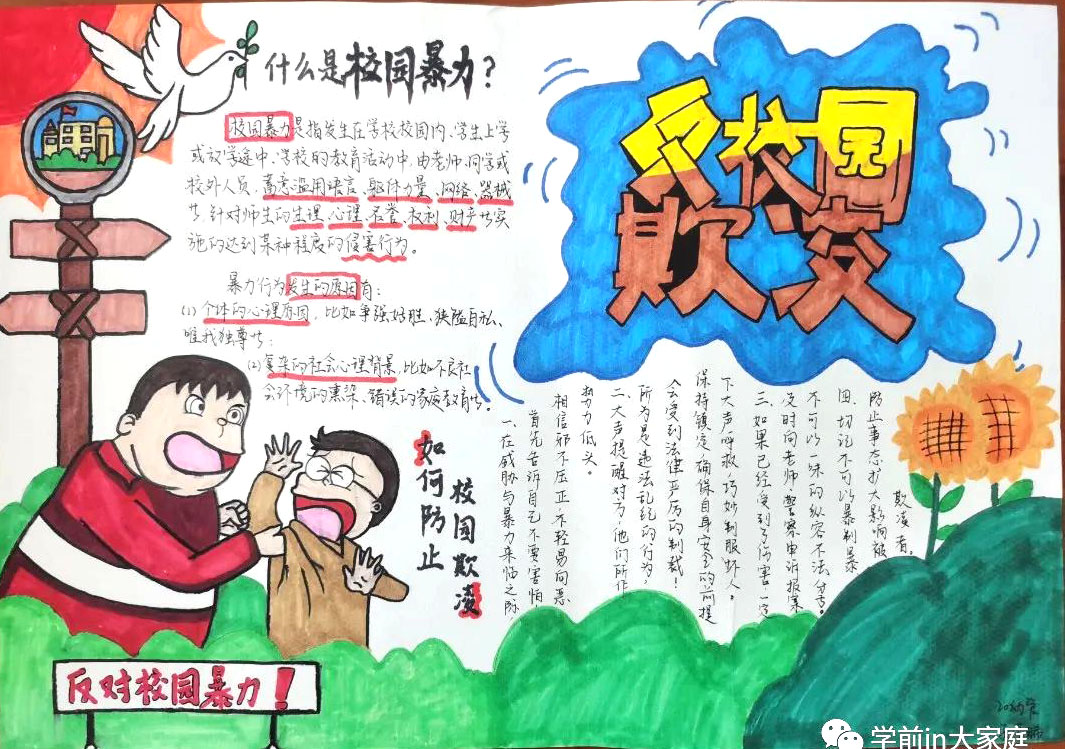 什么是校园暴力?
校园暴力是指发生在学校校园内、学生上学
或放学途中、学校的教育活动中,由老师、同学或
校外人员,蓄意滥用语言、躯体力量、网络、器械
等,针对师生的生理、心理、名誉、权利、财产等实
施的达到某种程度的侵害行为。
暴力行为发生的原因有:
(1)个体的心理原因,比如争强好胜、狭隘自私、
唯我独尊等;
(2)复杂的社会心理背景,比如不良社
会环境的熏染、错误的家庭教育等。
反校园
欺凌
如何防止
校园欺凌
一、在威胁与暴力来临之际,
首先告诉自己不要害怕!
相信邪不压正,不轻易向恶
势力低头。
二、大声提醒对方,他们所作
所为是违法乱纪的行为,
会受到法律严厉的制裁!
保持镇定,确保自身安全的前提
下大声呼救,巧妙制服坏人。
三、如果已经受到了伤害,一定
及时向老师、警察申诉报案
不可以一味的纵容不法分子。
四、切记不可以暴制暴
防止事态扩大影响被
欺凌者。
反对校园暴力!
学前in大家庭